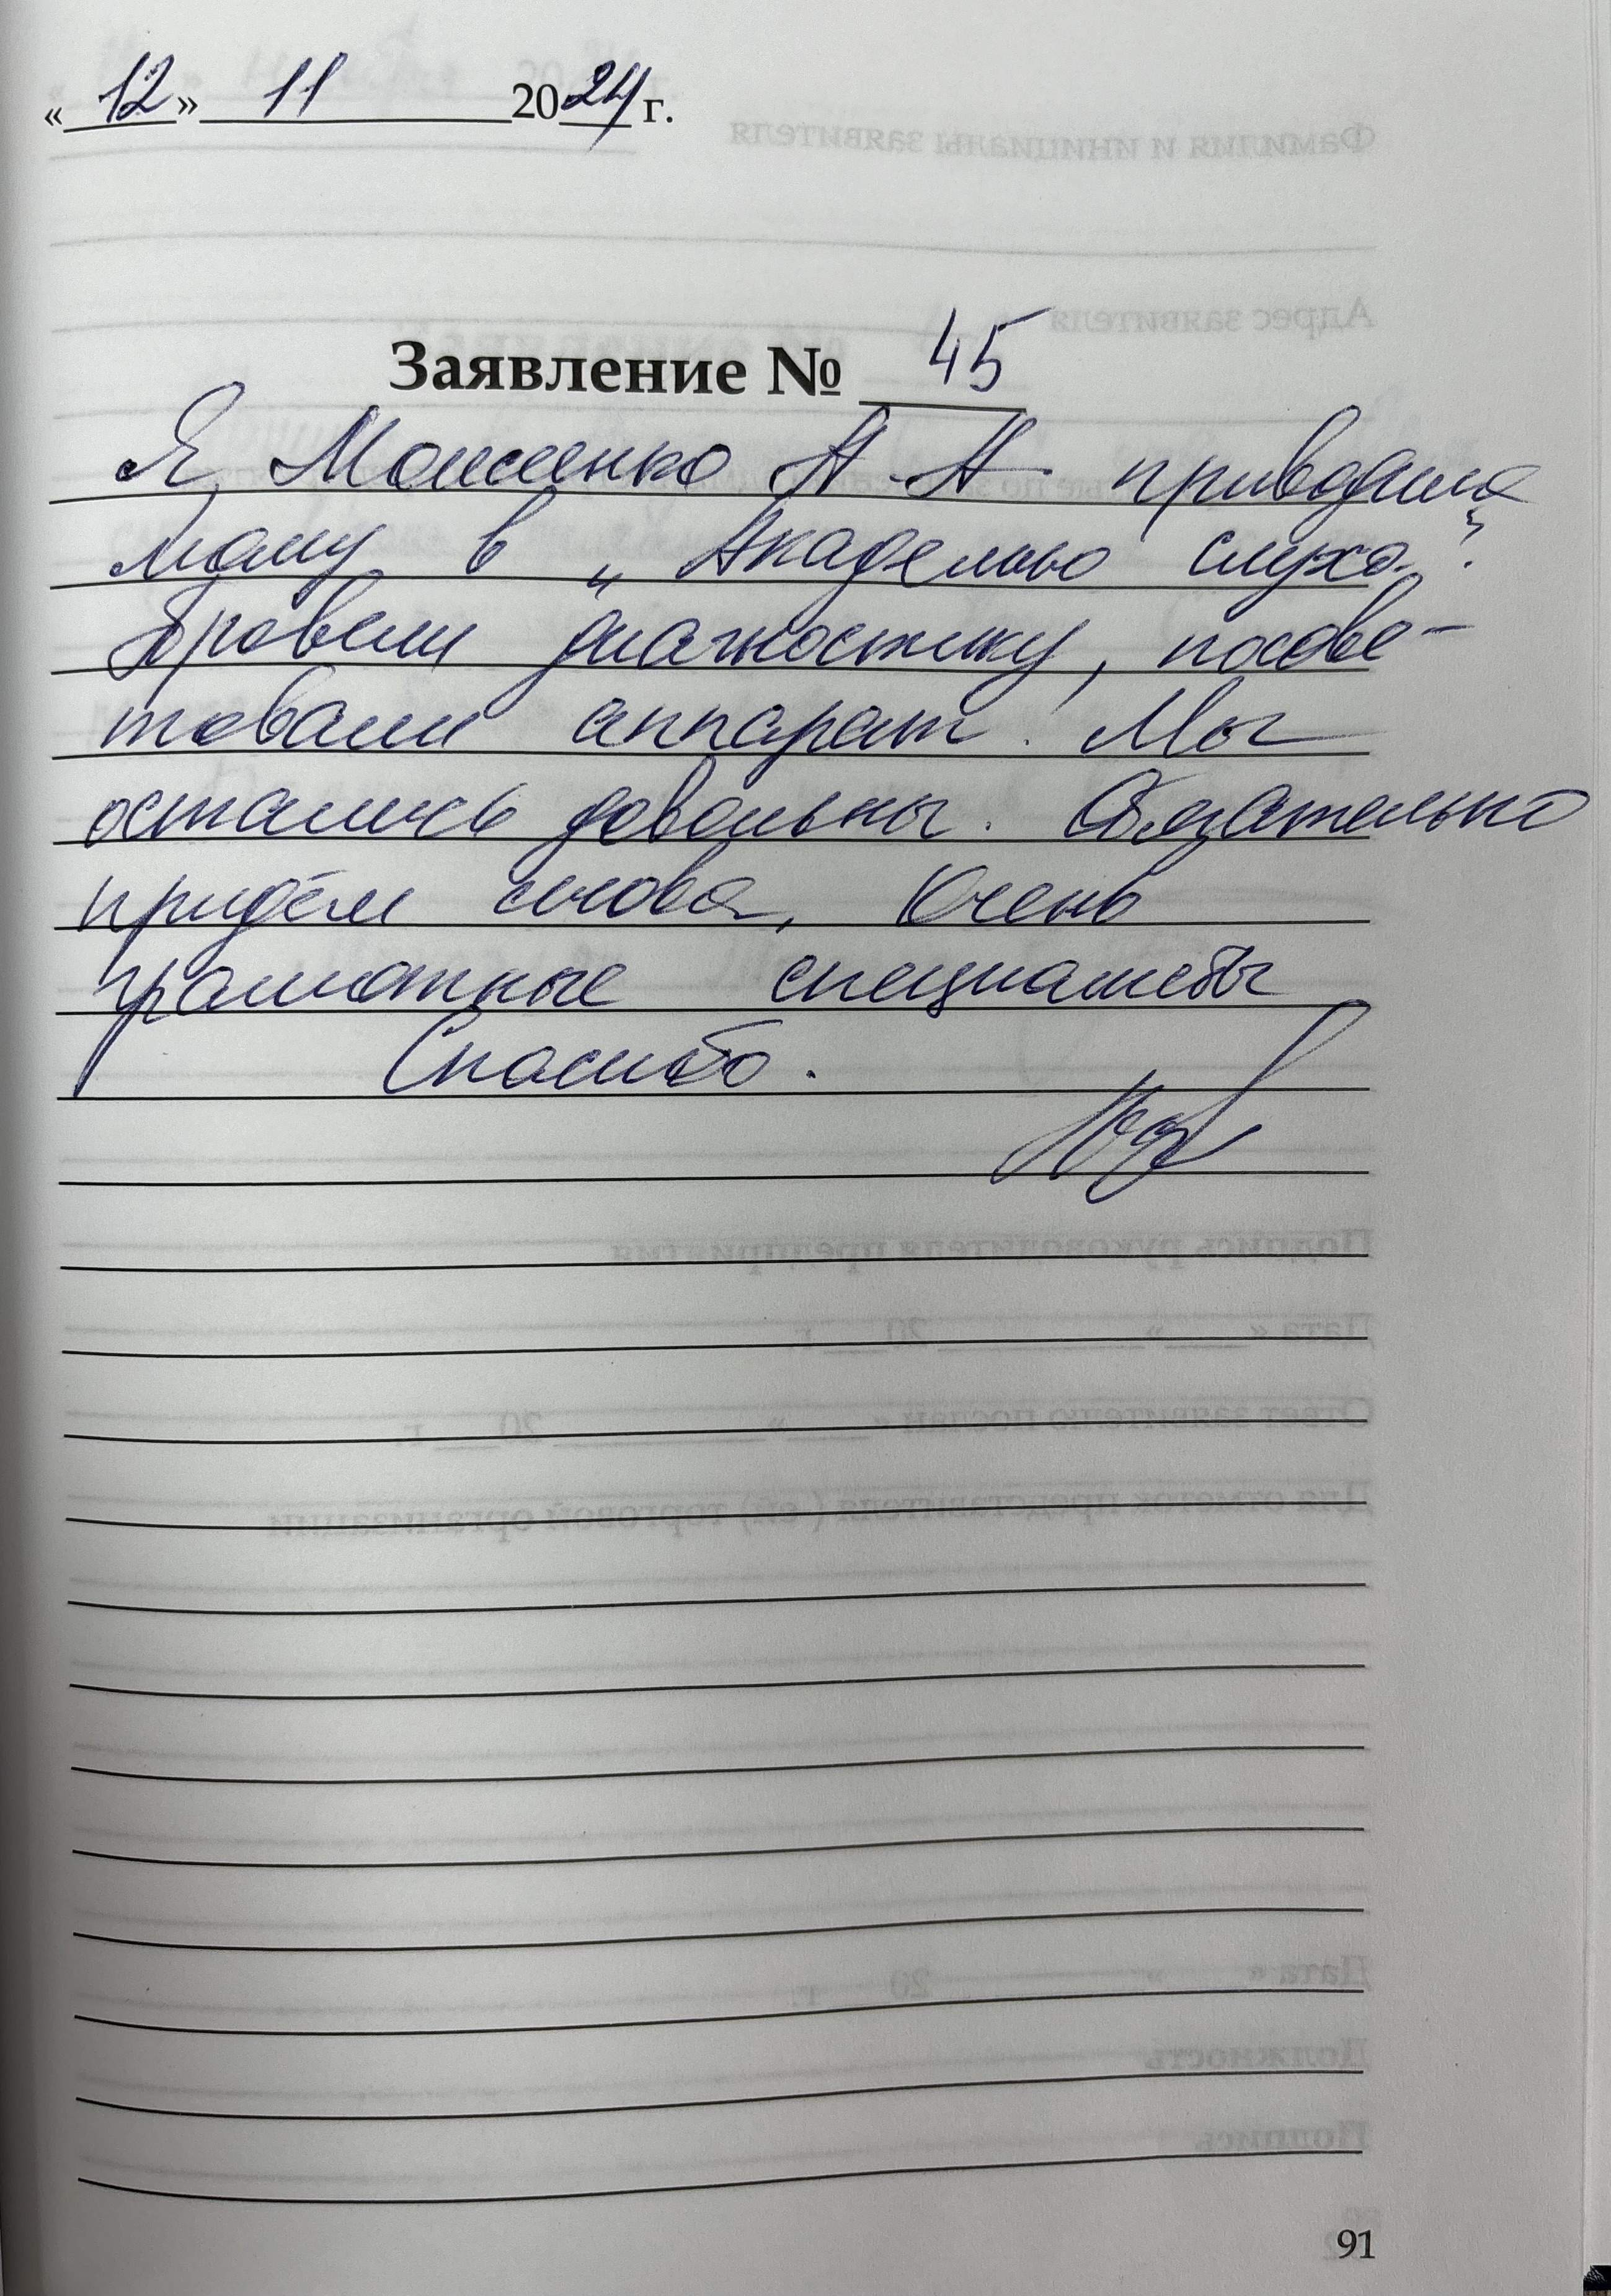 « 12 » 11 2024 г.
Заявление № 45
Я, А. А. приводила
маму в „Академию слуха".
Провели диагностику, посове-
товали аппарат. Мы
остались довольны. Обязательно
придём снова, Очень
грамотные специалисты
Спасибо.
91